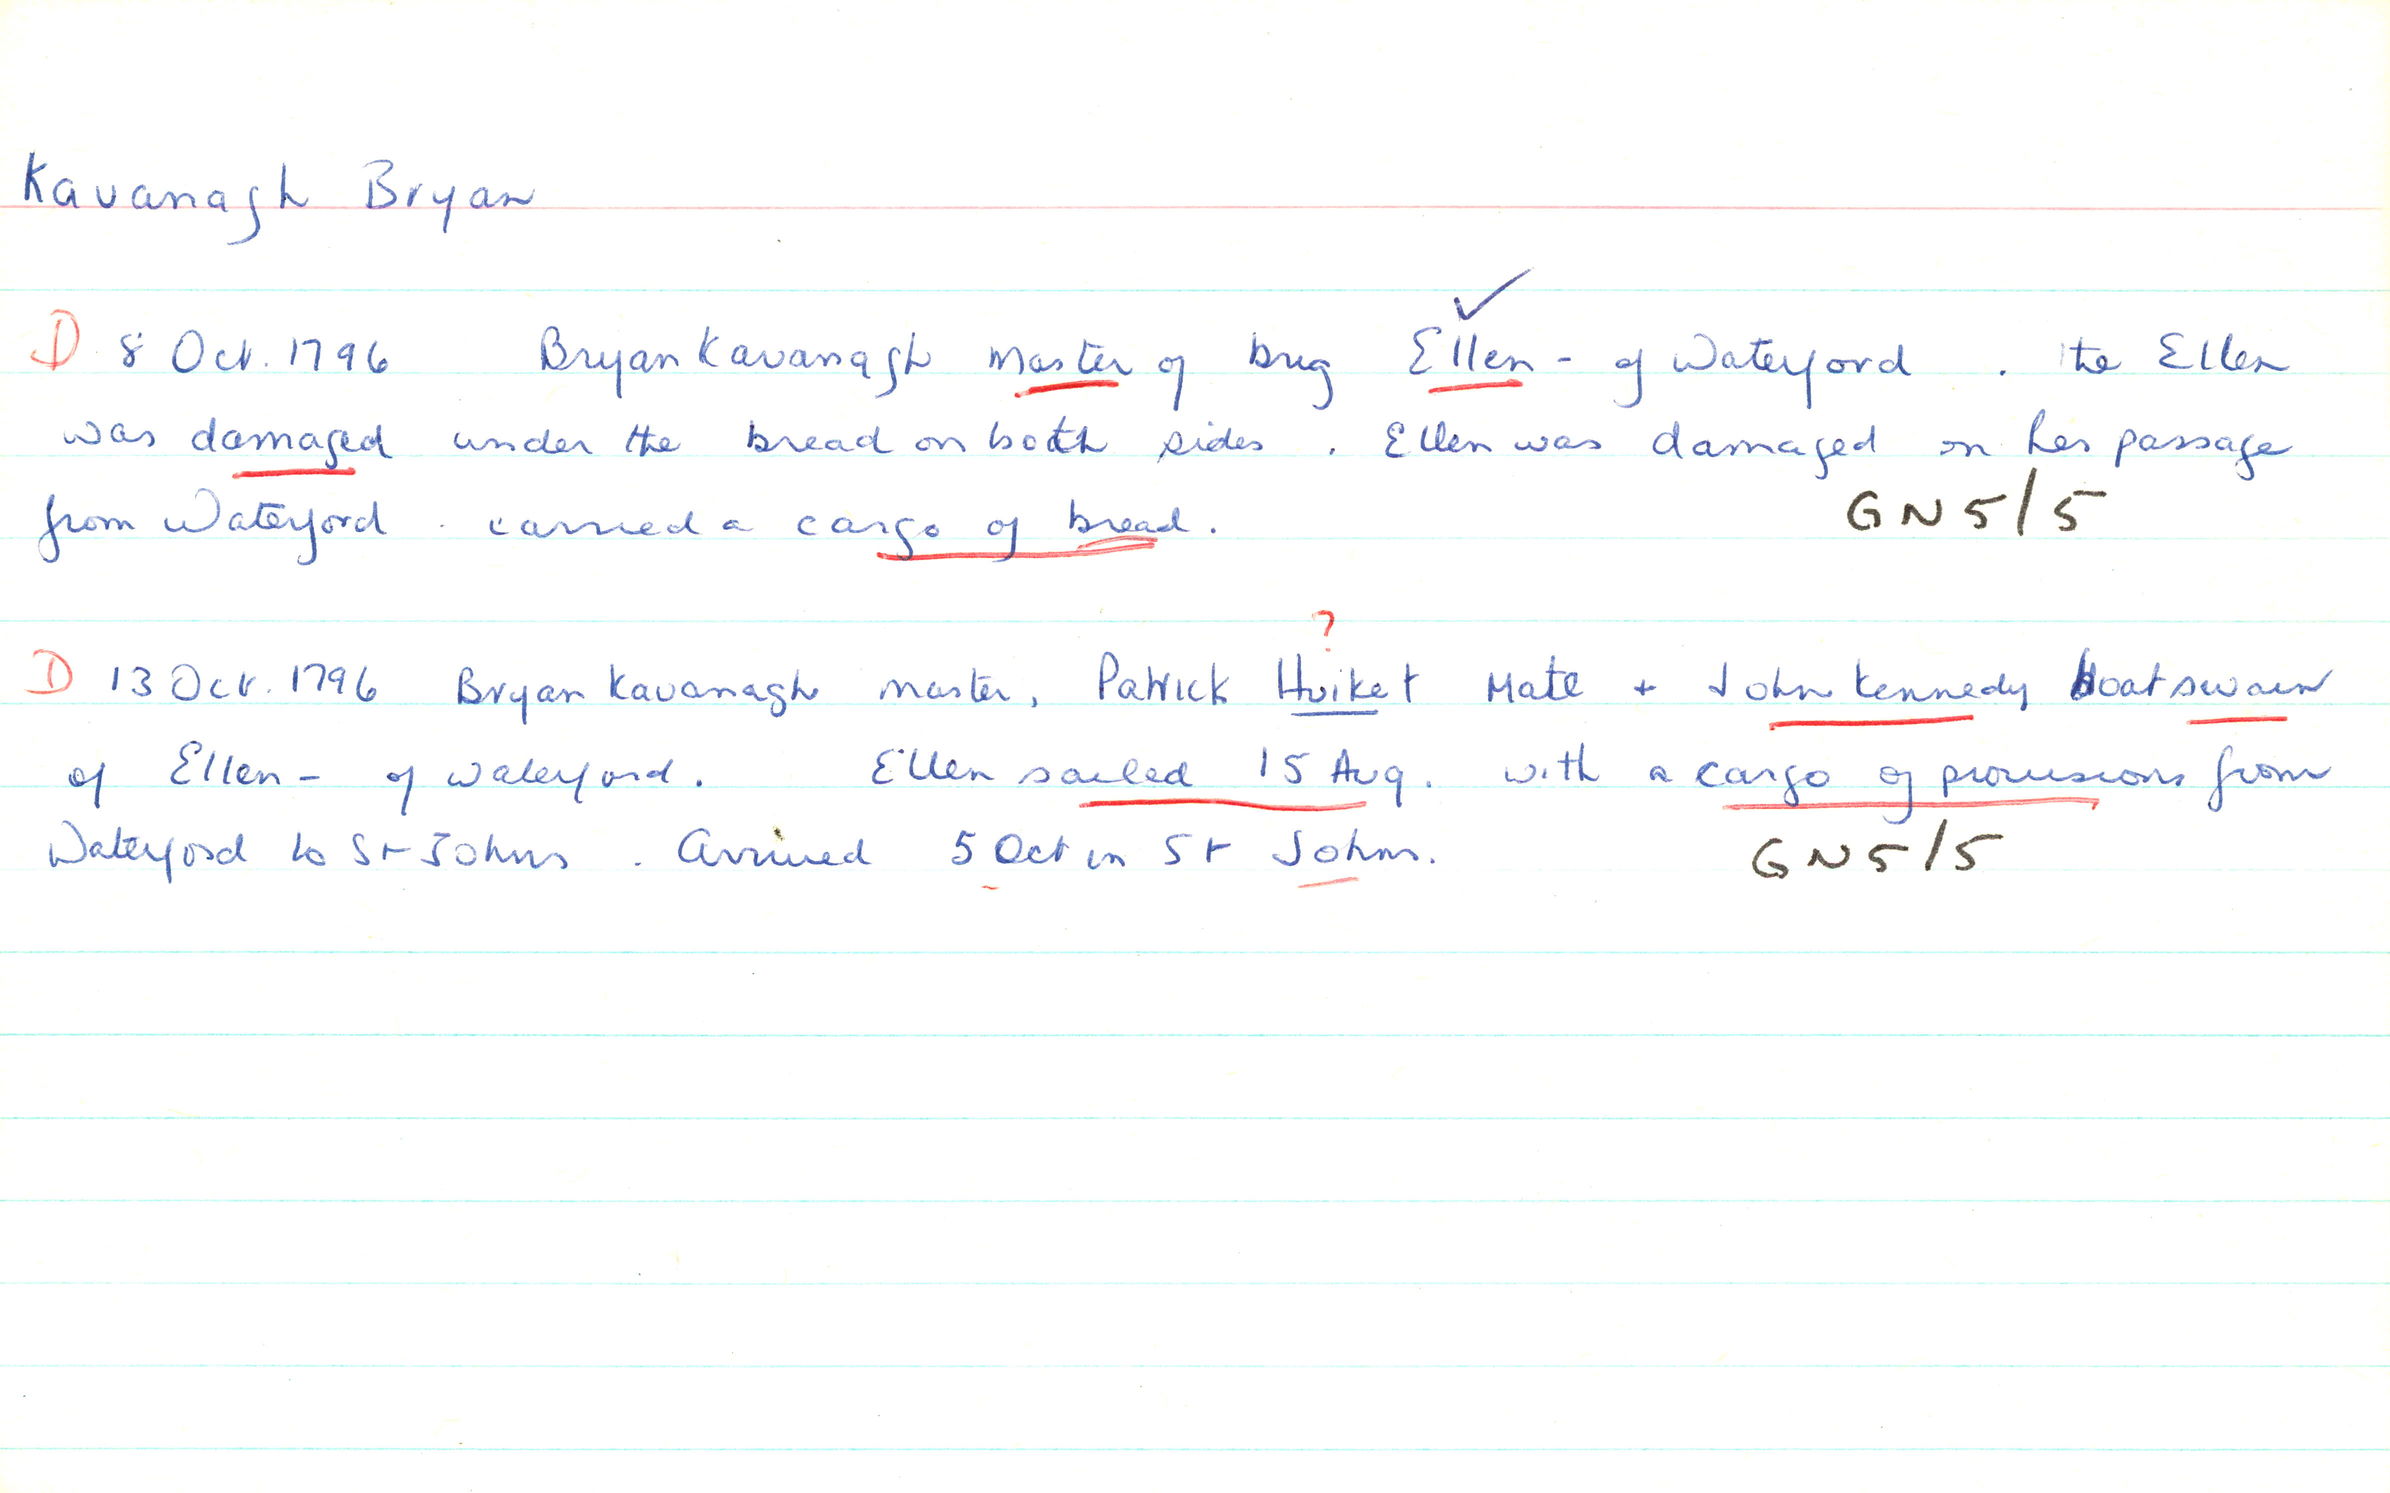 Kavanagh Bryan
D 8 Oct. 1796 Bryan Kavanagh Master of brig Ellen - of Waterford . the Ellen
was damaged under the bread on both sides . Ellen was damaged on her passage
from Waterford . carried a cargo of bread. GN5/5
?
D 13 Oct. 1796 Bryan Kavanagh master, Patrick Huiket Mate + John Kennedy Boatswain
of Ellen - of Waterford. Ellen sailed 15 Aug. with a cargo of provisions from
Waterford to St Johns . Arrived 5 Oct in St Johns. GN5/5